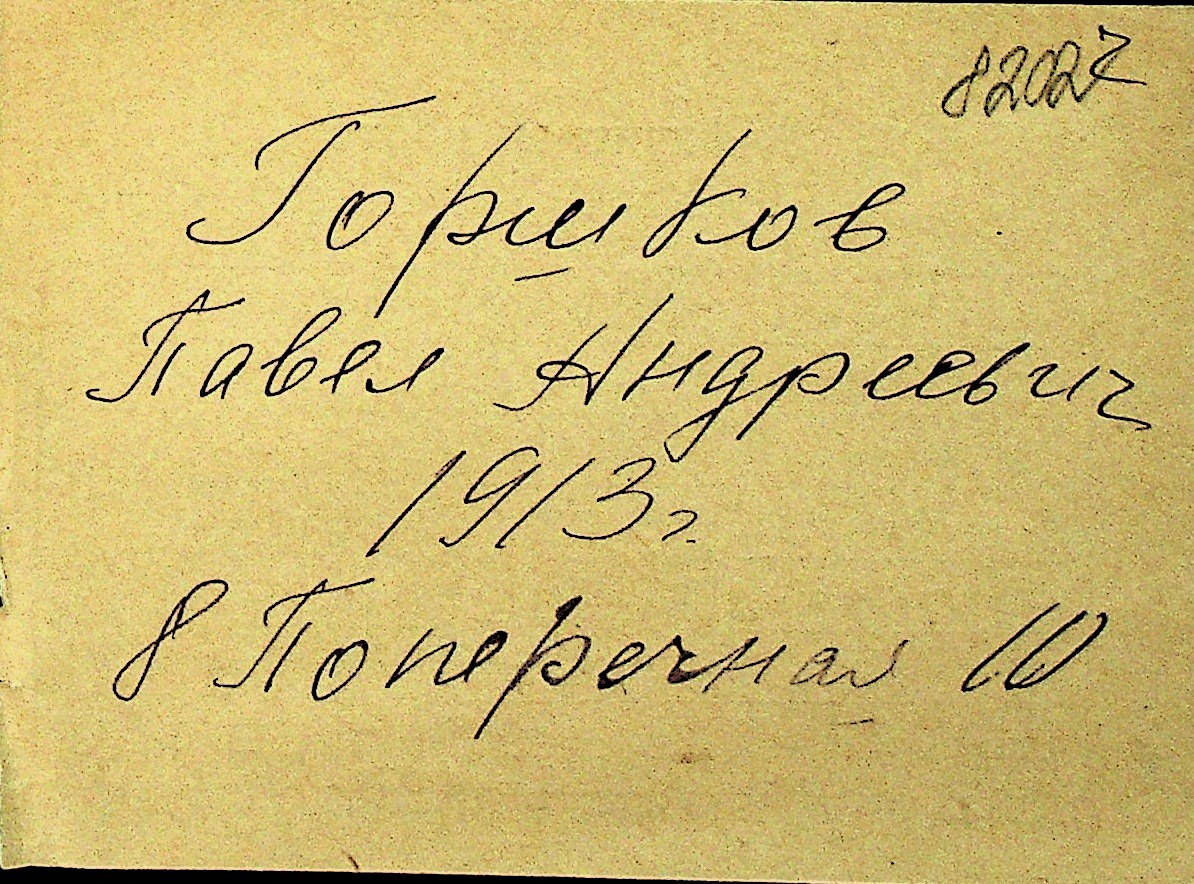 82027
Горшков
Павел Андреевич
1913г.
8 Поперечная 10